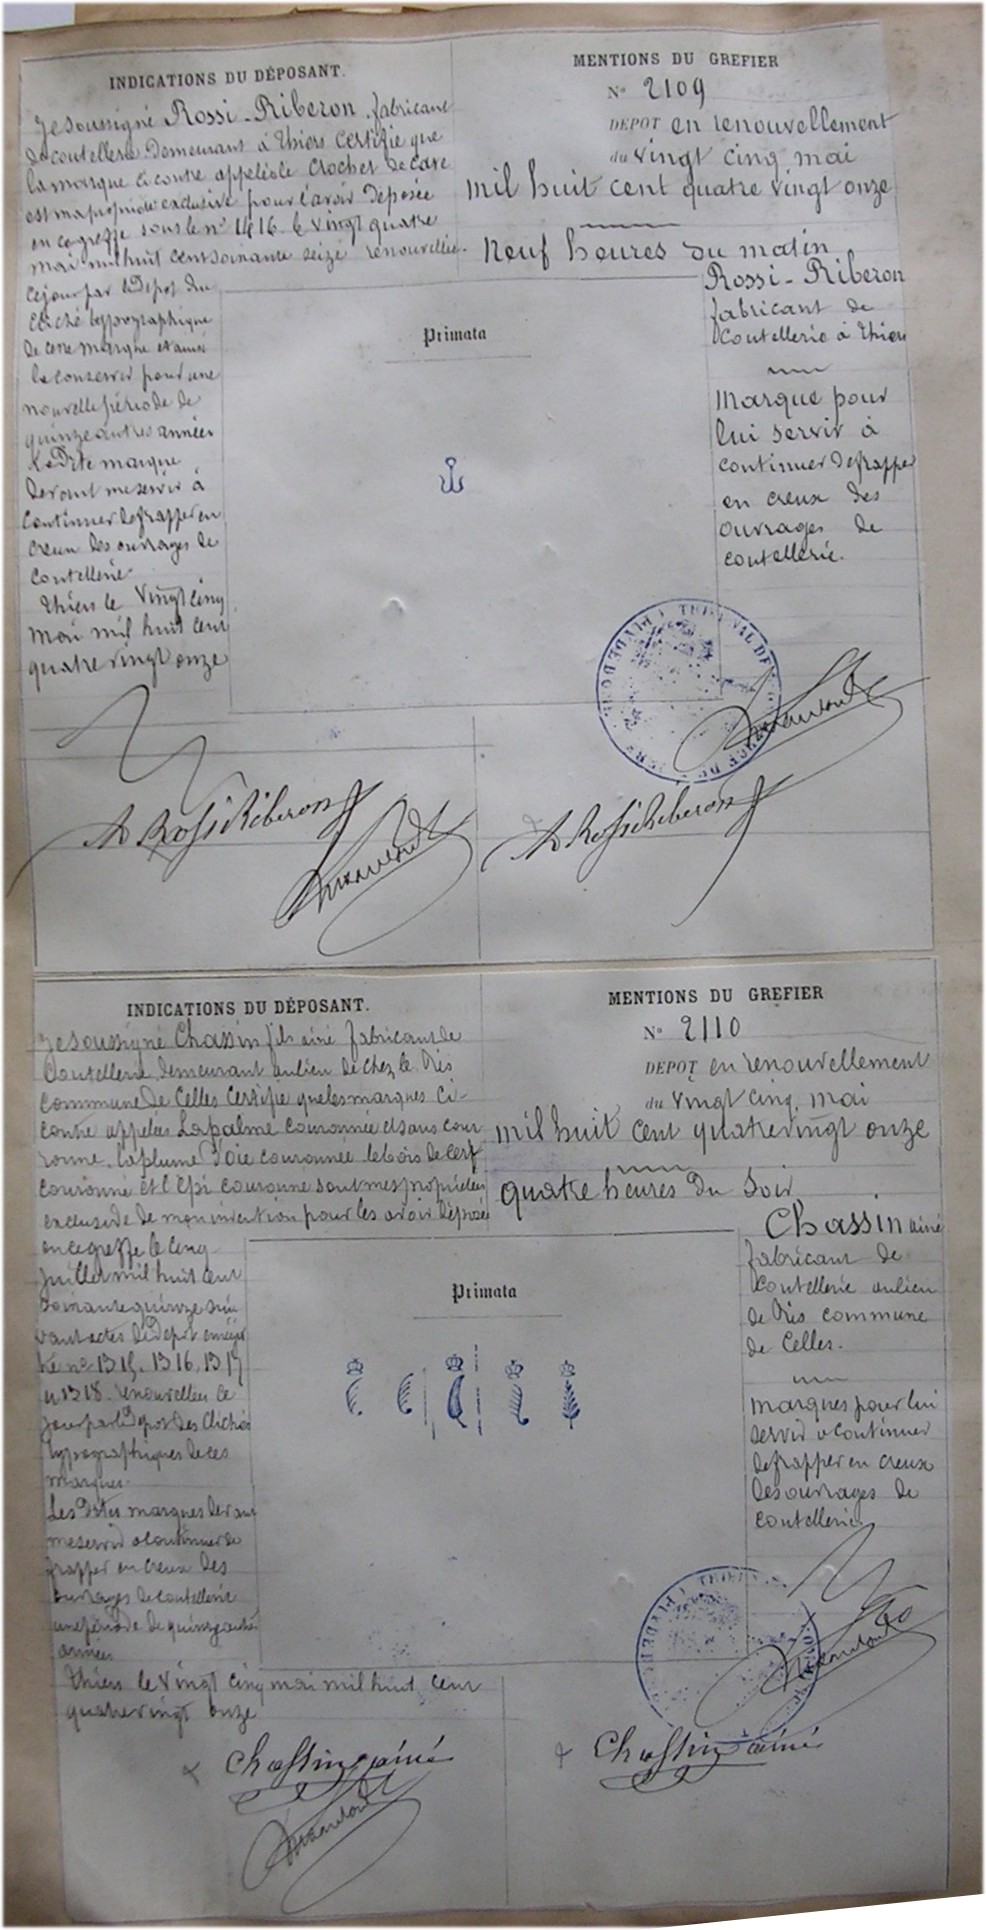 INDICATIONS DU DÉPOSANT.
Je soussigné Rossi-Riberon fabricant
de coutellerie Demeurant à Thiers Certifie que
la marque ci contre appelée le Crochet de Cave
est ma propriété exclusive pour l'avoir Déposée
en ce greffe sous le n° 1416 le vingt quatre
mai mil huit cent soixante seize renouvellée
ce jour par le Dépot du
Cliché typographique
de cette marque et ainsi
la conserver pour une
nouvelle période de
quinze autres années
La Dite marque
devant me servir à
Continuer de frapper en
creux des ouvrages de
Coutellerie
Thiers le Vingt cinq
mai mil huit cent
quatre vingt onze
MENTIONS DU GREFIER
N° 2109
DÉPOT en renouvellement
du vingt cinq mai
mil huit cent quatre vingt onze
Neuf heures du matin
Primata
Rossi-Riberon
fabricant de
Coutellerie à Thiers
Marque pour
lui servir à
continuer de frapper
en creux des
ouvrages de
coutellerie.
Rossi Riberon
Rossi Riberon
INDICATIONS DU DÉPOSANT.
Je soussigné Chassin fils ainé fabricant de
Coutellerie demeurant au lieu de chez le Ris
commune de Celles Certifie que les marques ci-
contre appelées La palme Couronnée et sans cour
ronne. la plume D'Oie couronnée le bois de cerf
couronné et l'Epi couronné sont mes propriétés
exclusive de mon invention pour les avoir Déposées
en ce greffe le cinq
Juillet mil huit cent
soixante quinze sui
vant actes de Dépot enregis
tré n° 1315. 1316. 1317
et 1318. renouvellées ce
jour par le Dépot des Clichés
typographiques de ces
marques.
Les Dites marques devant
me servir a Continuer de
frapper en creux des
ouvrages de coutellerie
une période de quinze autres
années
Thiers le vingt cinq mai mil huit cent
quatre vingt onze
MENTIONS DU GREFIER
N° 2110
DÉPOT en renouvellement
du vingt cinq mai
mil huit cent quatre vingt onze
quatre heures du soir
Primata
Chassin ainé
fabricant de
Coutellerie au lieu
de Ris commune
de Celles.
marques pour lui
servir a continuer
de frapper en creux
des ouvrages de
coutellerie.
Chassin ainé
Chassin ainé